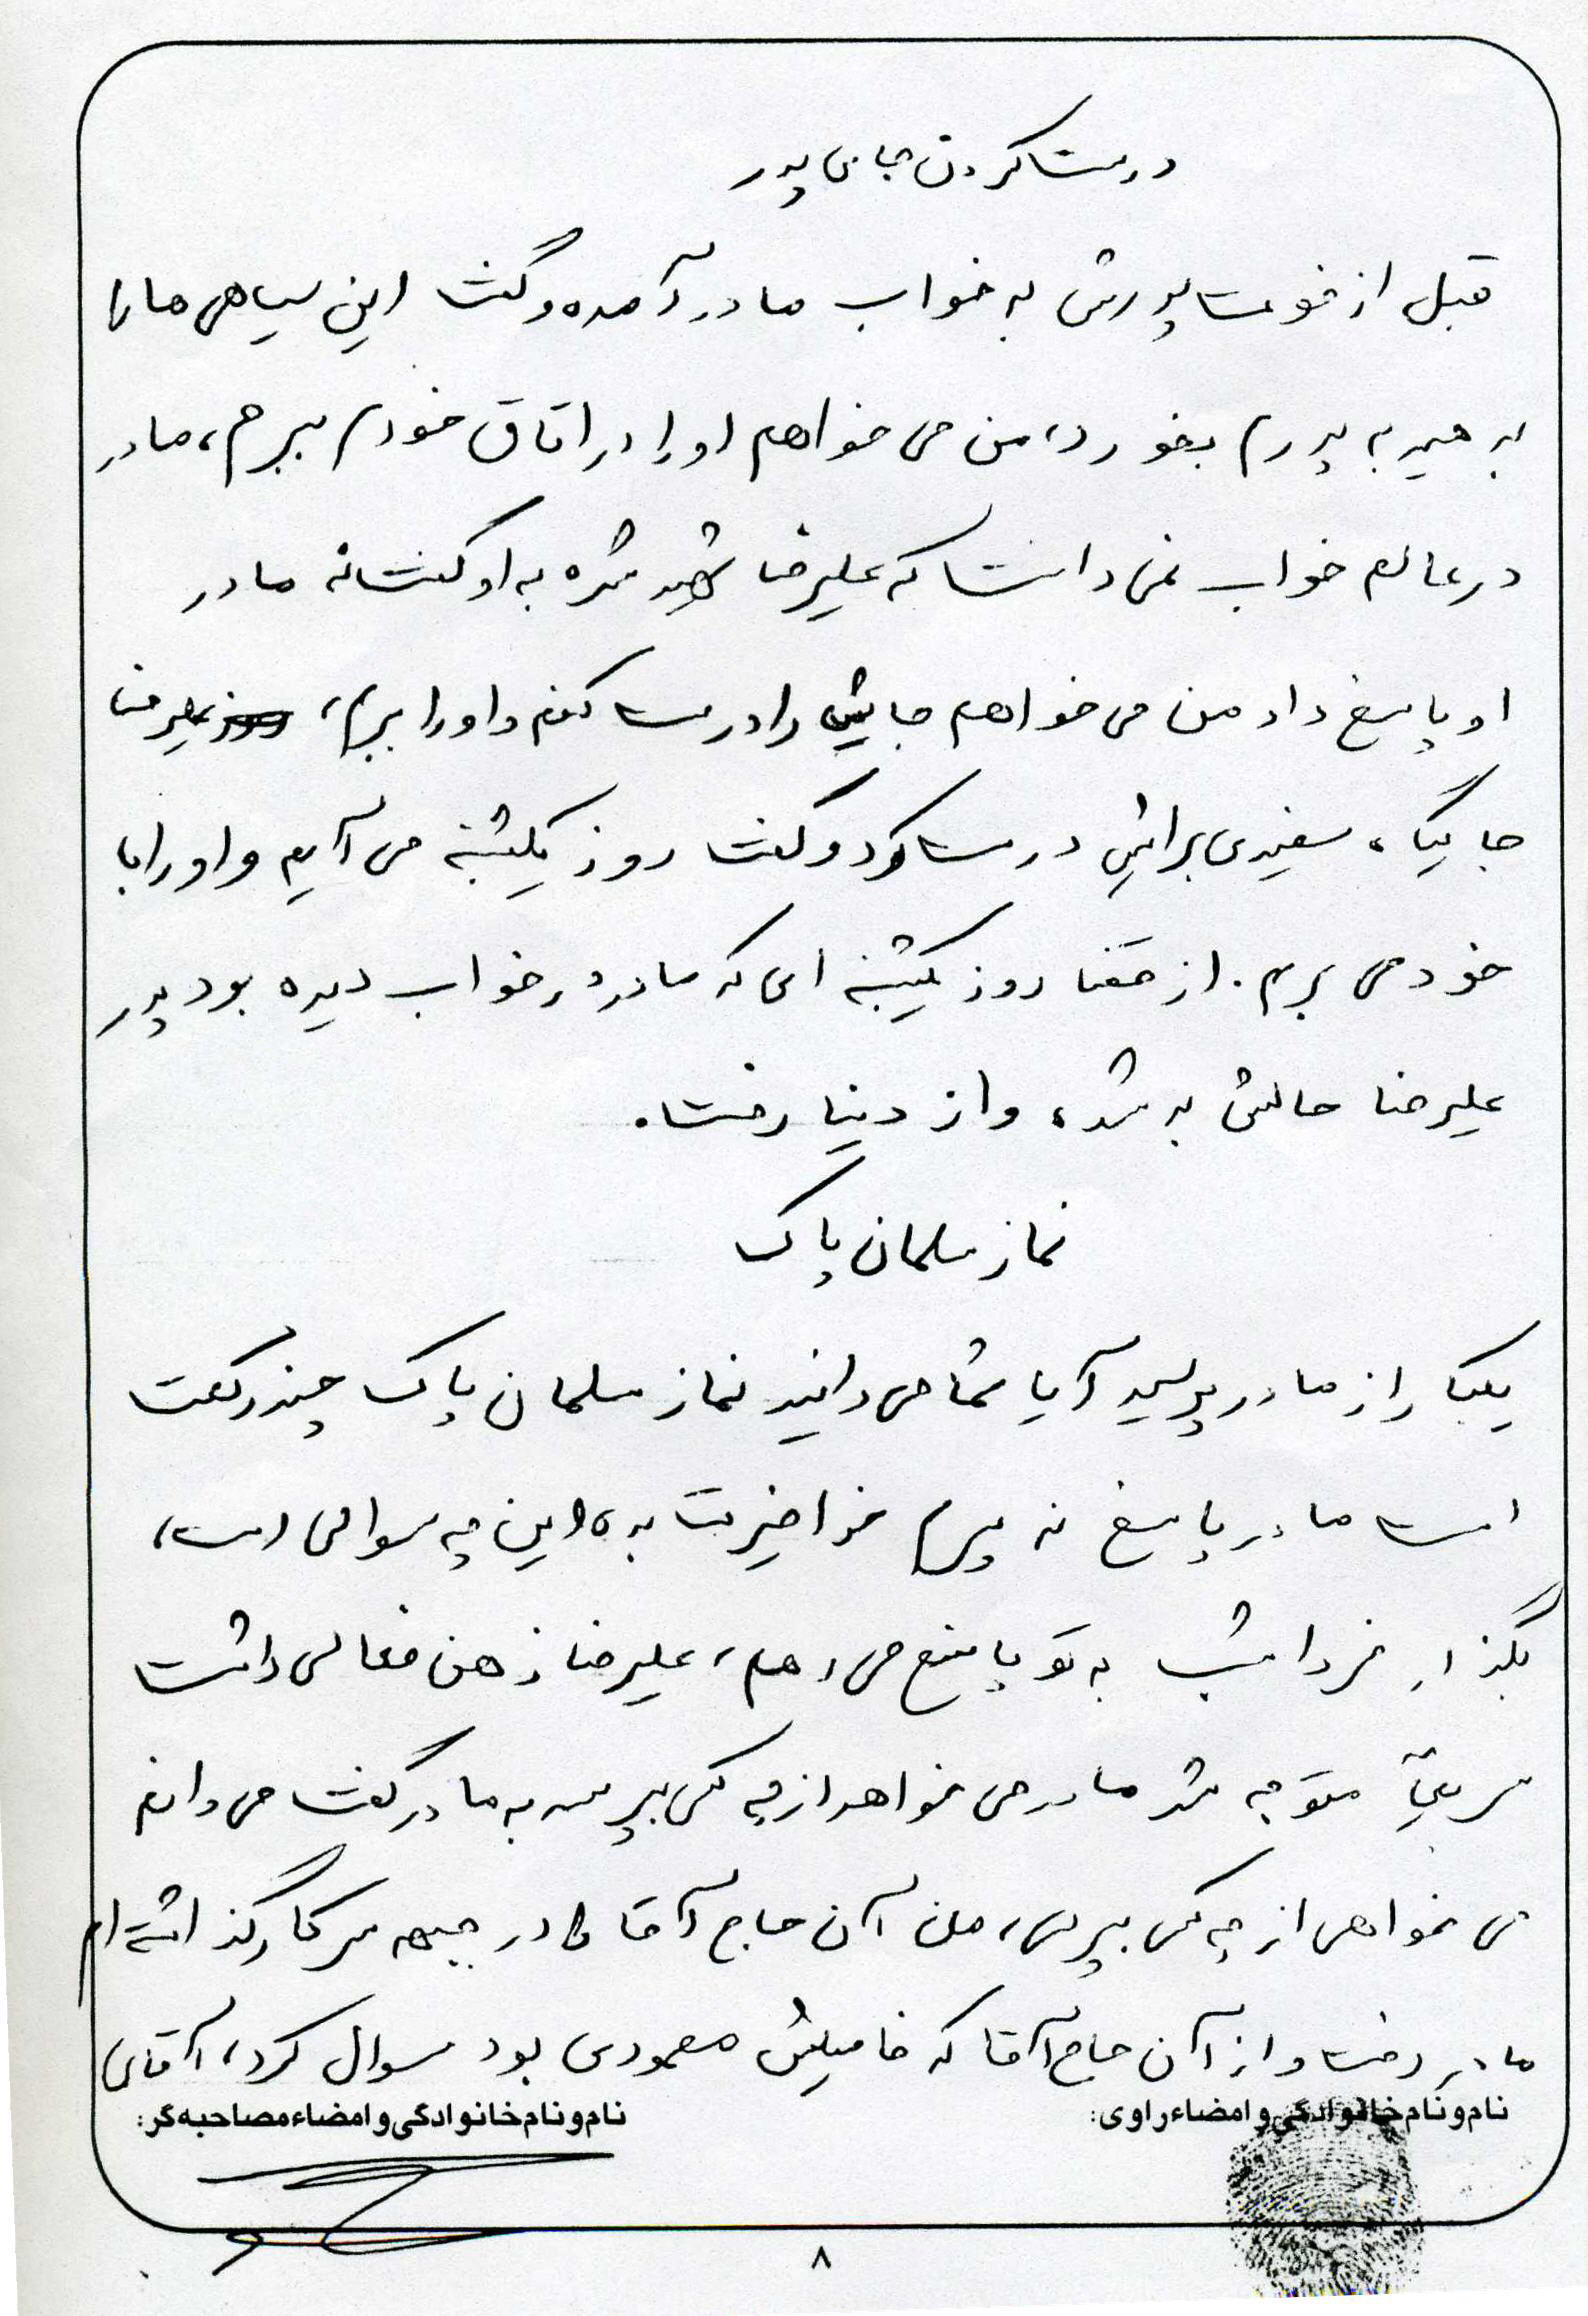 درست کردن جای پدر
قبل از فوت پدرش به خواب مادر آمده و گفت این سیاهی ها را
به پدرم بخورد، من می خواهم او را در اتاق خودم ببرم، مادر
در عالم خواب نمی دانست که علیرضا شهید شده به او گفت نه مادر
او پاسخ داد من می خواهم جایش را درست کنم و او را ببرم، علیرضا
جایگاه سفیدی برایش درست کرد و گفت روز یکشنبه می آیم و او را با
خود می برم. از قضا روز یکشنبه ای که مادر در خواب دیده بود پدر
علیرضا حالش بد شد، و از دنیا رفت.
نماز سلمان پاک
یکبار از مادر پرسید آیا شما می دانید نماز سلمان پاک چند رکعت
است مادر پاسخ نه پسرم خدا خیرت بده این چه سوالی است،
بگذار فردا شب به تو پاسخ می دهم، علیرضا ذهن فعالی داشت
سریعاً متوجه شد مادر می خواهد از چه کسی بپرسد به مادر گفت می دانم
می خواهی از چه کسی بپرسی، من آن حاج آقا را در جبهه سر کار گذاشته ام
مادر رفت و از آن حاج آقا که فامیلش محمودی بود سوال کرد، آقای
نام و نام خانوادگی و امضاء راوی:
نام و نام خانوادگی و امضاء مصاحبه گر:
۸